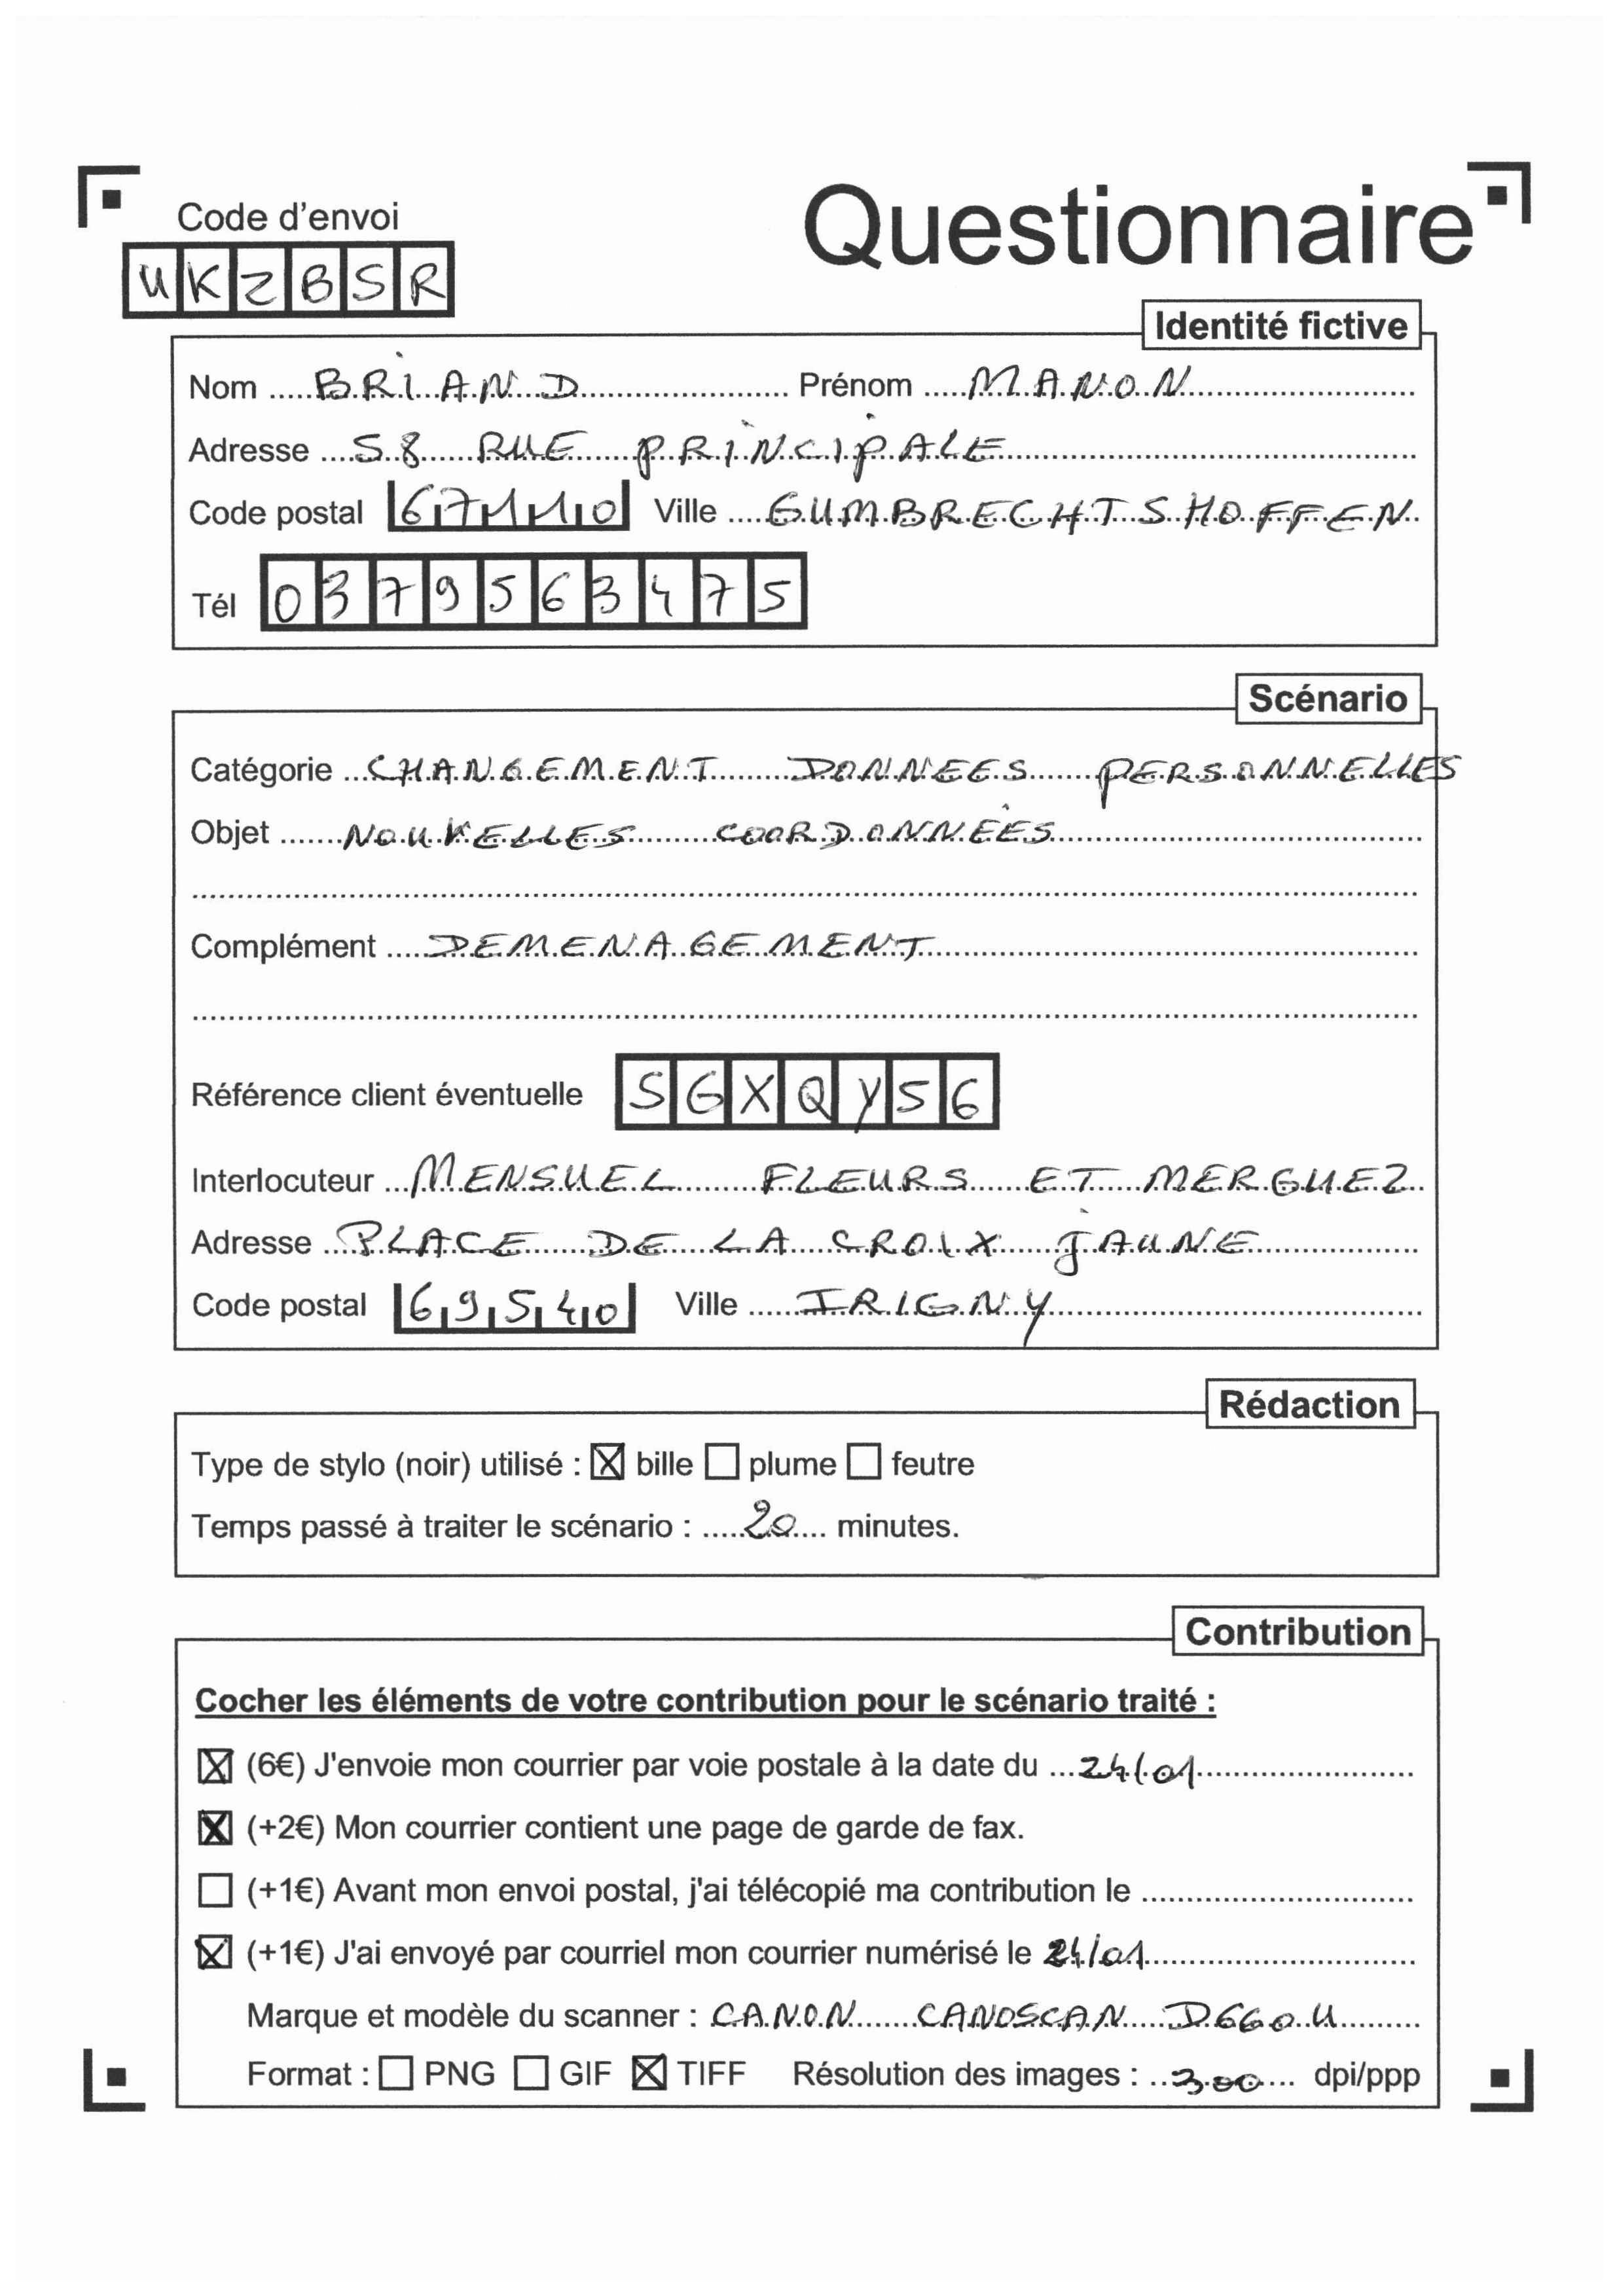 Code d'envoi
Questionnaire
UKZBSR
Identité fictive
Nom BRIAND Prénom MANON
Adresse 58 RUE PRINCIPALE
Code postal 67110 Ville GUMBRECHTSHOFFEN
Tél 0379563475
Scénario
Catégorie CHANGEMENT DONNEES PERSONNELLES
Objet NOUVELLES COORDONNÉES
Complément DEMENAGEMENT
Référence client éventuelle SGXQY56
Interlocuteur MENSUEL FLEURS ET MERGUEZ
Adresse PLACE DE LA CROIX JAUNE
Code postal 69540 Ville IRIGNY
Rédaction
Type de stylo (noir) utilisé : ☒ bille ☐ plume ☐ feutre
Temps passé à traiter le scénario : 20 minutes.
Contribution
Cocher les éléments de votre contribution pour le scénario traité :
☒ (6€) J'envoie mon courrier par voie postale à la date du 24/01
☒ (+2€) Mon courrier contient une page de garde de fax.
☐ (+1€) Avant mon envoi postal, j'ai télécopié ma contribution le
☒ (+1€) J'ai envoyé par courriel mon courrier numérisé le 24/01
Marque et modèle du scanner : CANON CANOSCAN D660U
Format : ☐ PNG ☐ GIF ☒ TIFF Résolution des images : 300 dpi/ppp